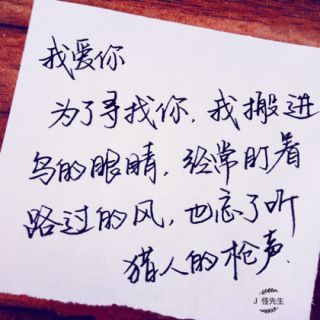 我爱你
为了寻找你，我搬进
鸟的眼睛，经常盯着
路过的风，也忘了听
猎人的枪声.
J 怪先生